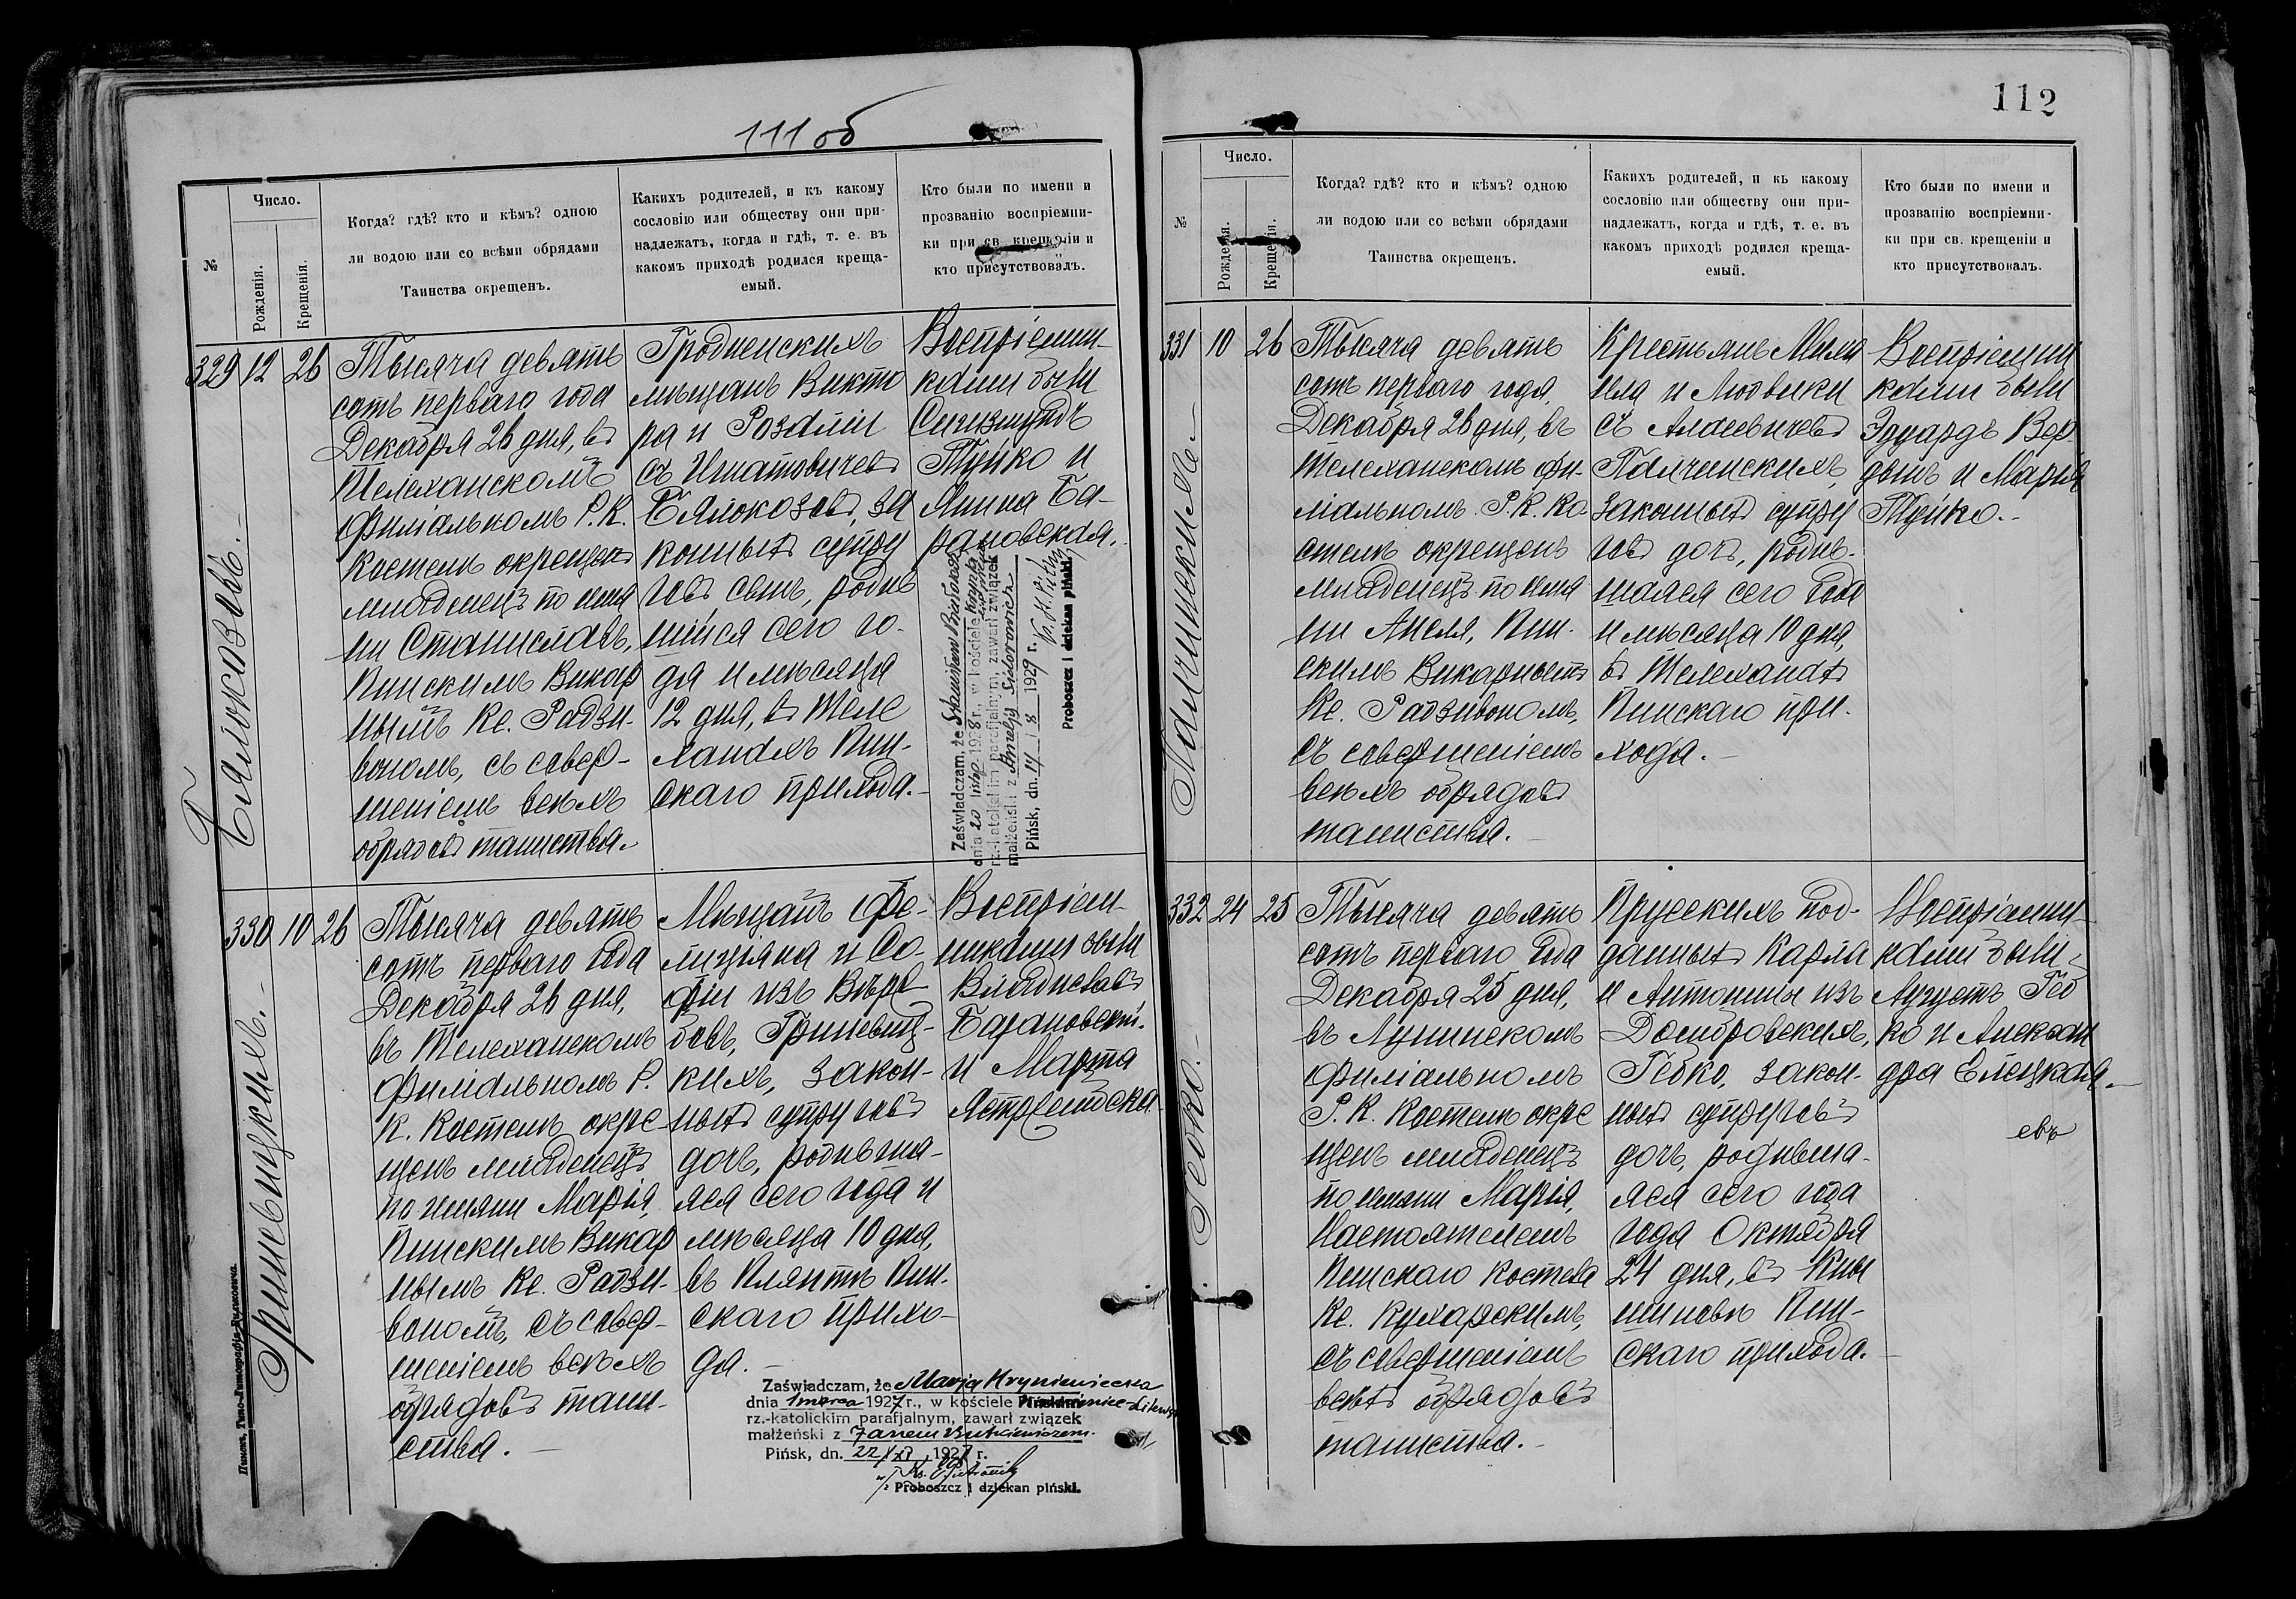 111 об
№
Число.
Рожденія.
Крещенія.
Когда? гдѣ? кто и кѣмъ? одною
ли водою или со всѣми обрядами
Таинства окрещенъ.
Какихъ родителей, и къ какому
сословію или обществу они при-
надлежатъ, когда и гдѣ, т. е. въ
какомъ приходѣ родился креща-
емый.
Кто были по имени и
прозванію воспріемни-
ки при св. крещеніи и
кто присутствовалъ.
Бялокозовъ.-
329 12 26
Тысяча девять
сотъ перваго года
Декабря 26 дня, въ
Телеханскомъ
Филіальномъ Р. К.
Костелѣ окрещенъ
младенецъ по имя
ни Станиславъ,
Пинскимъ Викар
нымъ Кс. Радзи-
вономъ, съ совер-
шеніемъ всѣхъ
обрядовъ таинства.
Гродненскихъ
мѣщанъ Викто
ра и Розаліи
съ Игнатовичевъ
Бялокозовъ, за
конныхъ супру
говъ сынъ, родив
шійся сего го-
да и мѣсяца
12 дня, въ Теле
ханахъ Пин-
скаго прихода.-
Воспріемни
ками были
Сигизмундъ
Туйко и
Янина Ба-
рановская.
Zaświadczam, że Stanisław
dnia 20 1928 r., w kościele
rz.-katolickim parafjalnym, zawarł związek
małżeński z Sidorowicz
Pińsk, dn. 14 / 8 1929 r.
Proboszcz i dziekan piński.
Гриневицкихъ.-
330 10 26
Тысяча девять
сотъ перваго года
Декабря 26 дня,
въ Телеханскомъ
Филіальномъ Р.
К. Костелѣ окре
щенъ младенецъ
по имяни Марія,
Пинскимъ Викар
нымъ Кс. Радзи-
вономъ, съ совер-
шеніемъ всѣхъ
обрядовъ таин-
ства.-
Мѣщанъ Фе-
лиціяна и Со-
фіи изъ
Гриневиц-
кихъ, закон-
ныхъ супруговъ
дочь, родивша-
яся сего года и
мѣсяца 10 дня,
въ Плянтѣ Пин-
скаго прихо-
да.-
Воспріем-
никами были
Владиславъ
Барановскій
и Марта
Zaświadczam, że Marja Hryniewiecka
dnia 1 marca 1927 r., w kościele
rz.-katolickim parafjalnym, zawarł związek
małżeński z Janem
Pińsk, dn. 22/XI 1927 r.
Proboszcz i dziekan piński.
Пинскъ, Типо-Литографія
112
№
Число.
Рожденія.
Крещенія.
Когда? гдѣ? кто и кѣмъ? одною
ли водою или со всѣми обрядами
Таинства окрещенъ.
Какихъ родителей, и къ какому
сословію или обществу они при-
надлежатъ, когда и гдѣ, т. е. въ
какомъ приходѣ родился креща-
емый.
Кто были по имени и
прозванію воспріемни-
ки при св. крещеніи и
кто присутствовалъ.
331 10 26
Тысяча девять
сотъ перваго года
Декабря 26 дня, въ
Телеханскомъ Фи-
ліальномъ Р. К. Ко
стелѣ окрещенъ
младенецъ по имя
ни Анеля, Пин-
скимъ Викарнымъ
Кс. Радзивономъ,
съ совершеніемъ
всѣхъ обрядовъ
таинства.-
Крестьянъ Миха
ила и Людвики
съ
законныхъ супру
говъ дочь, родив-
шаяся сего года
и мѣсяца 10 дня,
въ Телеханахъ
Пинскаго при-
хода.-
Воспріемни
ками были
Эдуардъ Вер
дынъ и Марія
Туйко.-
Гебко.-
332 24 25
Тысяча девять
сотъ перваго года
Декабря 25 дня,
въ Лунинскомъ
Филіальномъ
Р. К. Костелѣ окре
щенъ младенецъ
по имяни Марія,
Настоятелемъ
Пинскаго Костела
Кс. Кухарскимъ,
съ совершеніемъ
всѣхъ обрядовъ
таинства.-
Прусскихъ под-
данныхъ Карла
и Антонины изъ
Домбровскихъ,
Гебко, закон-
ныхъ супруговъ
дочь, родивша-
яся сего года
года Октября
24 дня, въ
Пин-
скаго прихода.-
Воспріемни-
ками были
Августъ Геб
ко и Алексан
дра Елецкая.-
евъ